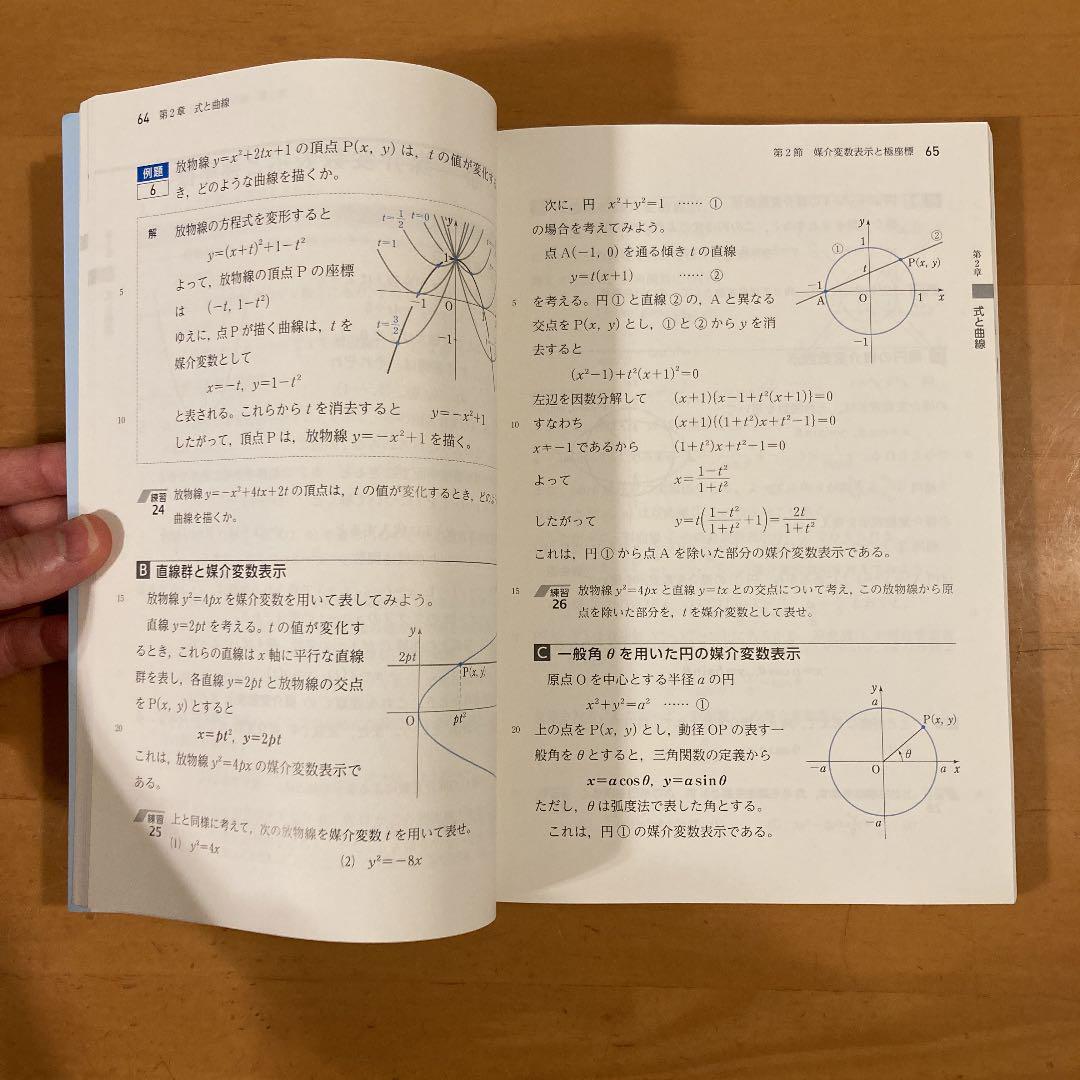 64 第2章 式と曲線
例題
6
放物線 y=x²+2tx+1 の頂点 P(x, y) は, t の値が変化する
き, どのような曲線を描くか。
解 放物線の方程式を変形すると
y=(x+t)²+1-t²
よって, 放物線の頂点 P の座標
5
は (-t, 1-t²)
ゆえに, 点Pが描く曲線は, t を
媒介変数として
x=-t, y=1-t²
10 と表される。これらから t を消去すると y=-x²+1
したがって, 頂点Pは, 放物線 y=-x²+1 を描く。
t=1/2 t=0 y
t=1
1
-1 O
t=3/2
-1
練習
24
放物線 y=-x²+4tx+2t の頂点は, t の値が変化するとき, どのよ
曲線を描くか。
B 直線群と媒介変数表示
15 放物線 y²=4px を媒介変数を用いて表してみよう。
直線 y=2pt を考える。t の値が変化す
るとき, これらの直線は x 軸に平行な直線
群を表し, 各直線 y=2pt と放物線の交点
を P(x, y) とすると
20
x=pt², y=2pt
これは, 放物線 y²=4px の媒介変数表示で
ある。
y
2pt
P(x, y)
O pt²
練習
25
上と同様に考えて, 次の放物線を媒介変数 t を用いて表せ。
(1) y²=4x (2) y²=-8x
第2節 媒介変数表示と極座標 65
次に, 円 x²+y²=1 …… ①
の場合を考えてみよう。
点 A(-1, 0) を通る傾き t の直線
y=t(x+1) …… ②
5 を考える。円 ① と直線 ② の, A と異なる
交点を P(x, y) とし, ① と ② から y を消
去すると
(x²-1)+t²(x+1)²=0
左辺を因数分解して (x+1){x-1+t²(x+1)}=0
10 すなわち (x+1){(1+t²)x+t²-1}=0
x≠-1 であるから (1+t²)x+t²-1=0
よって x=(1-t²)/(1+t²)
したがって y=t((1-t²)/(1+t²)+1)=2t/(1+t²)
これは, 円 ① から点 A を除いた部分の媒介変数表示である。
y
① 1 ②
t P(x, y)
-1
A O 1 x
-1
第2章
式と曲線
15
練習
26
放物線 y²=4px と直線 y=tx との交点について考え, この放物線から原
点を除いた部分を, t を媒介変数として表せ。
C 一般角 θ を用いた円の媒介変数表示
原点 O を中心とする半径 a の円
x²+y²=a² …… ①
20 上の点を P(x, y) とし, 動径 OP の表す一
般角を θ とすると, 三角関数の定義から
x=a cosθ, y=a sinθ
ただし, θ は弧度法で表した角とする。
これは, 円 ① の媒介変数表示である。
y
a
P(x, y)
θ
-a O a x
-a